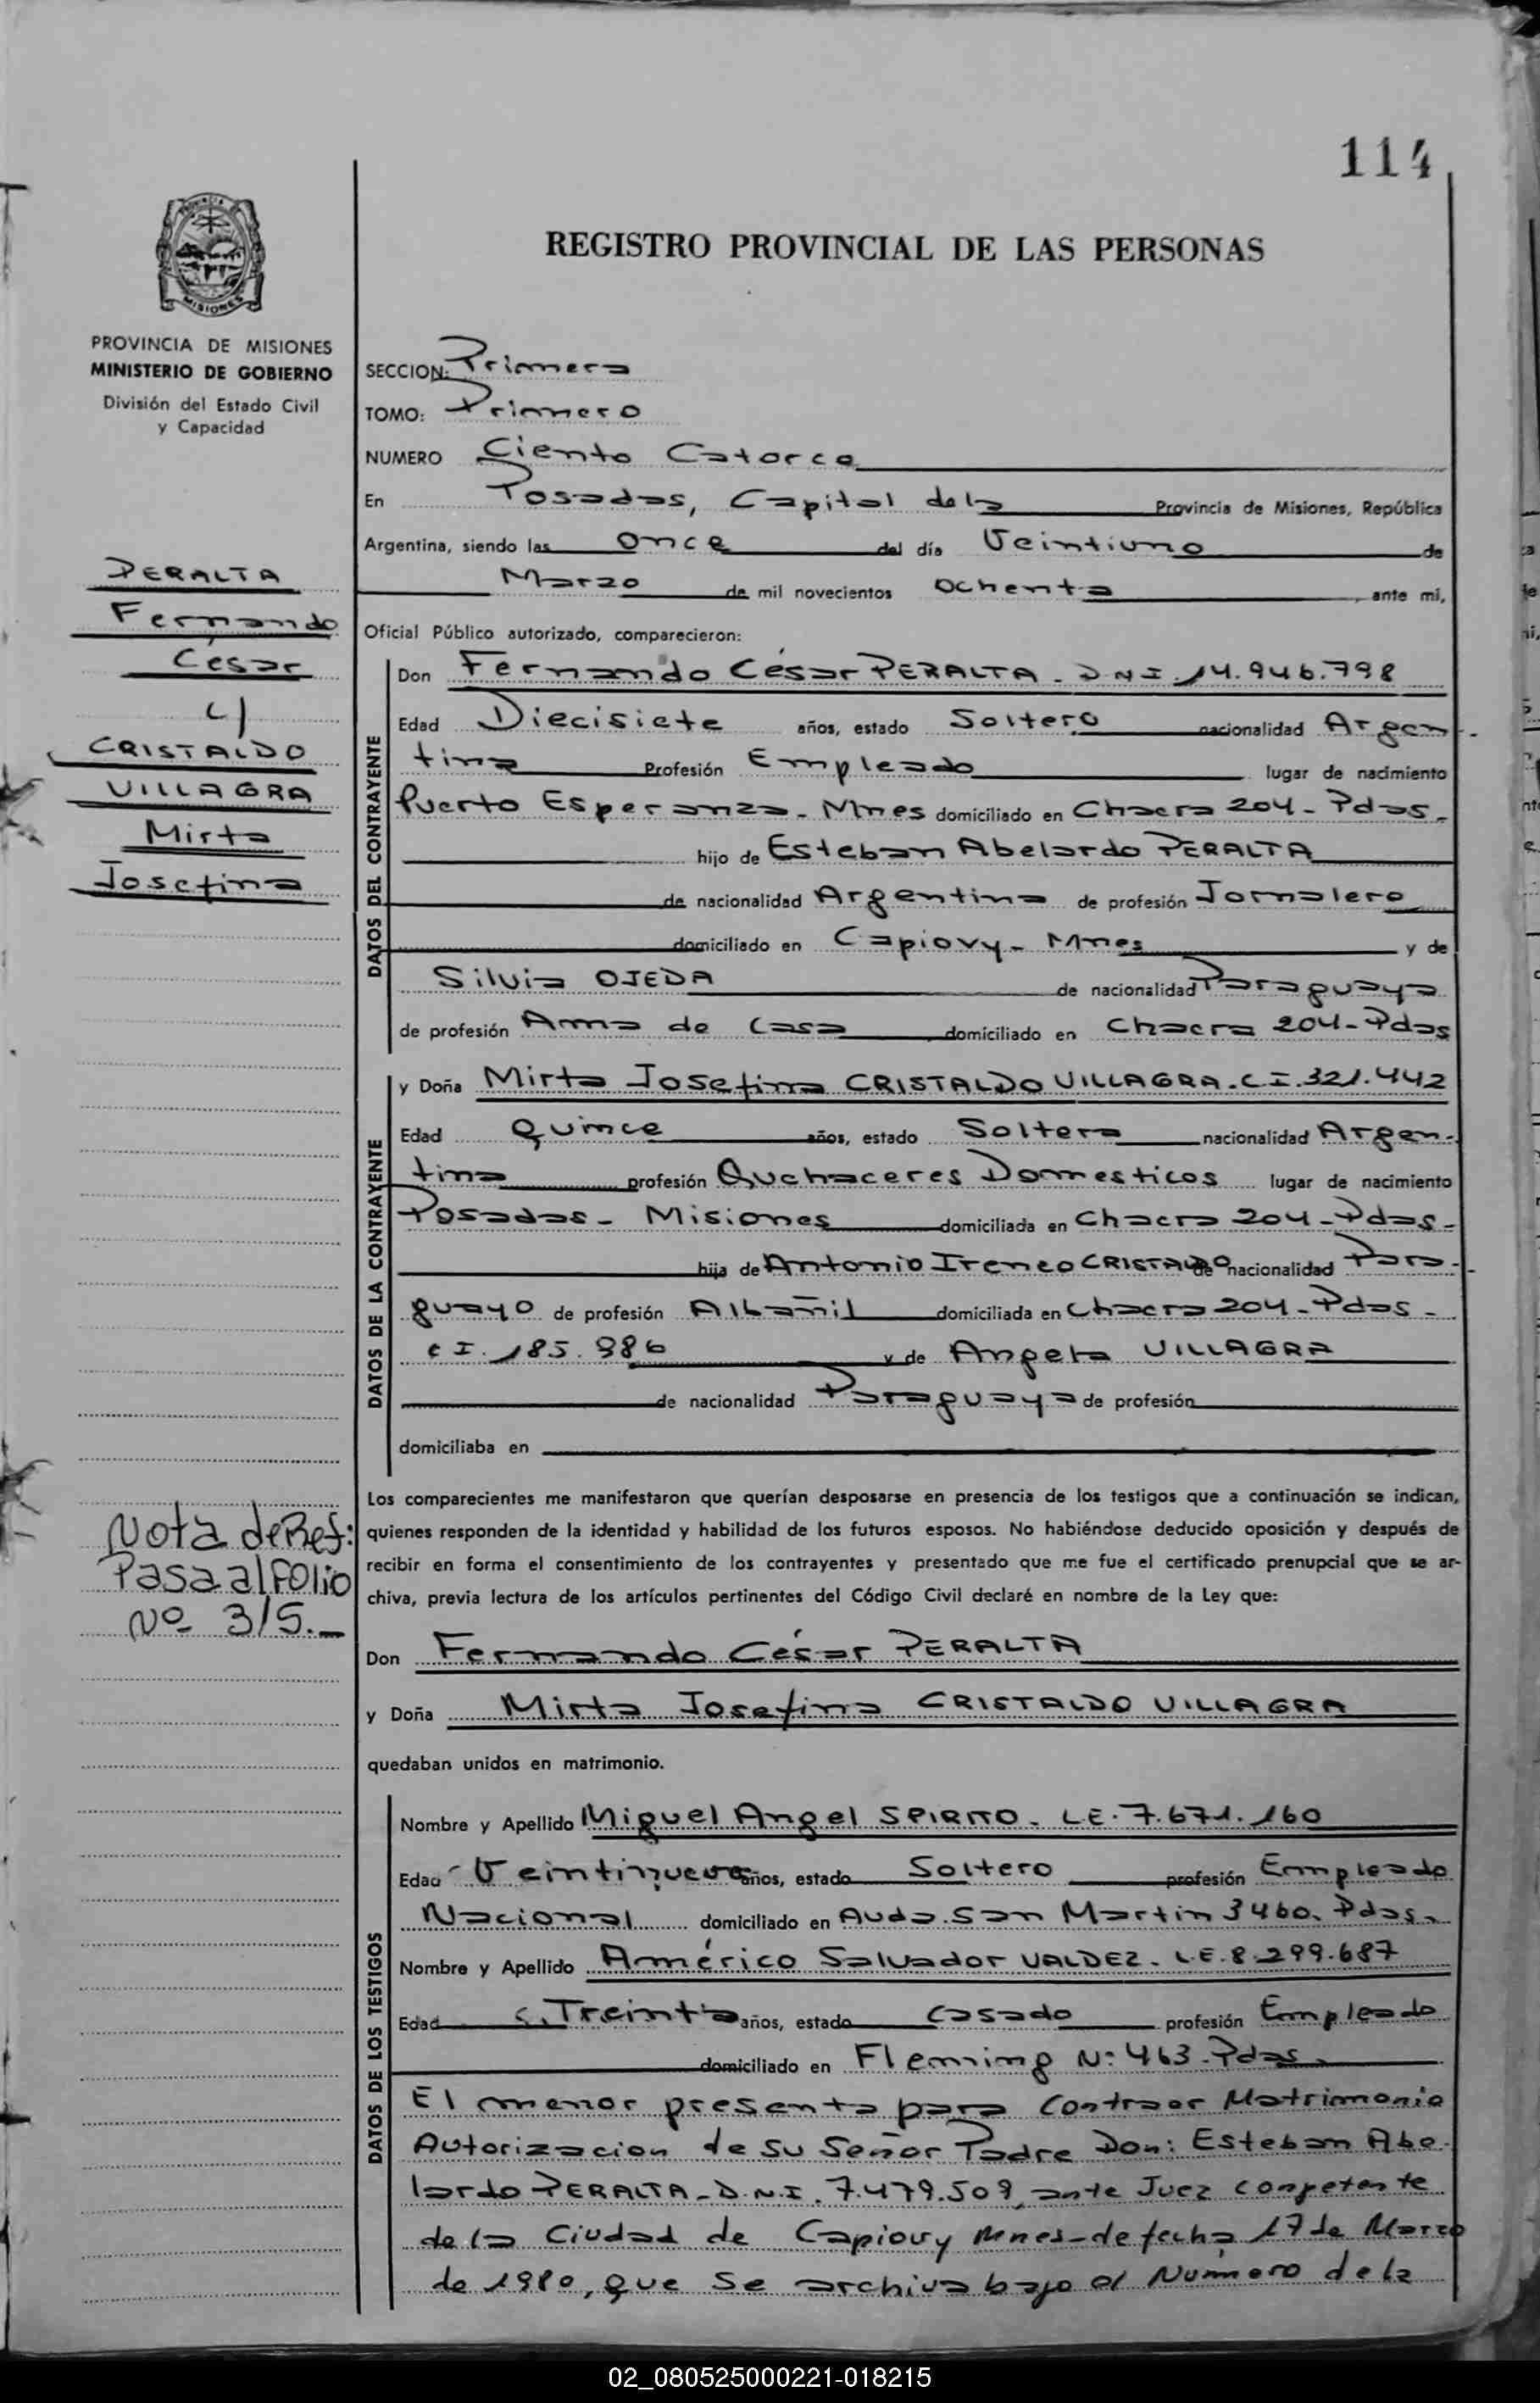 114
REGISTRO PROVINCIAL DE LAS PERSONAS
MISIONES
PROVINCIA DE MISIONES
MINISTERIO DE GOBIERNO
División del Estado Civil
y Capacidad
PERALTA
Fernando
César
c/
CRISTALDO
VILLAGRA
Mirta
Josefina
Nota de Ref:
Pasa al Folio
Nº 315.-
SECCION: Primera
TOMO: Primero
NUMERO Ciento Catorce
En Posadas, Capital de la Provincia de Misiones, República
Argentina, siendo las once del día Veintiuno de
Marzo de mil novecientos ochenta, ante mi,
Oficial Público autorizado, comparecieron:
DATOS DEL CONTRAYENTE
Don Fernando César PERALTA - D.N.I. 14.946.798
Edad Diecisiete años, estado Soltero nacionalidad Argen-
tina Profesión Empleado lugar de nacimiento
Puerto Esperanza - Mnes domiciliado en Chacra 204 - Pdas -
hijo de Esteban Abelardo PERALTA
de nacionalidad Argentina de profesión Jornalero
domiciliado en Capiovy - Mnes y de
Silvia OJEDA de nacionalidad Paraguaya
de profesión Ama de Casa domiciliado en Chacra 204 - Pdas
DATOS DE LA CONTRAYENTE
y Doña Mirta Josefina CRISTALDO VILLAGRA - C.I. 321.442
Edad Quince años, estado Soltera nacionalidad Argen-
tina profesión Quchaceres Domesticos lugar de nacimiento
Posadas - Misiones domiciliada en Chacra 204 - Pdas -
hija de Antonio Ireneo CRISTALDO de nacionalidad Para-
guayo de profesión Albañil domiciliada en Chacra 204 - Pdas -
C.I. 185.986 y de Angela VILLAGRA
de nacionalidad Paraguaya de profesión
domiciliaba en
Los comparecientes me manifestaron que querían desposarse en presencia de los testigos que a continuación se indican,
quienes responden de la identidad y habilidad de los futuros esposos. No habiéndose deducido oposición y después de
recibir en forma el consentimiento de los contrayentes y presentado que me fue el certificado prenupcial que se ar-
chiva, previa lectura de los artículos pertinentes del Código Civil declaré en nombre de la Ley que:
Don Fernando César PERALTA
y Doña Mirta Josefina CRISTALDO VILLAGRA
quedaban unidos en matrimonio.
DATOS DE LOS TESTIGOS
Nombre y Apellido Miguel Angel SPIRITO - L.E. 7.671.160
Edad Veintinueve años, estado Soltero profesión Empleado
Nacional domiciliado en Avda. San Martin 3460. Pdas -
Nombre y Apellido Américo Salvador VALDEZ - L.E. 8.299.687
Edad Treinta años, estado casado profesión Empleado
domiciliado en Fleming Nº 463 - Pdas -
El menor presenta para contraer Matrimonio
Autorizacion de su Señor Padre Don: Esteban Abe-
lardo PERALTA - D.N.I. 7.479.509, ante Juez competente
de la Ciudad de Capiovy Mnes - de fecha 17 de Marzo
de 1980, que se archiva bajo el Numero de la
02_080525000221-018215